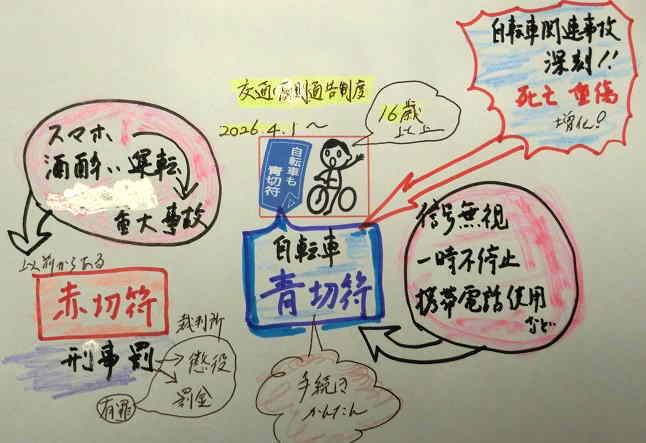 自転車関連事故
深刻!!
死亡 重傷
増化!
交通反則通告制度
2026.4.1～
16歳
以上
自転車も
青切符
スマホ
酒酔い運転
重大事故
以前からある
赤切符
刑事罰
裁判所
懲役
罰金
有罪
自転車
青切符
手続き
かんたん
信号無視
一時不停止
携帯電話使用
など